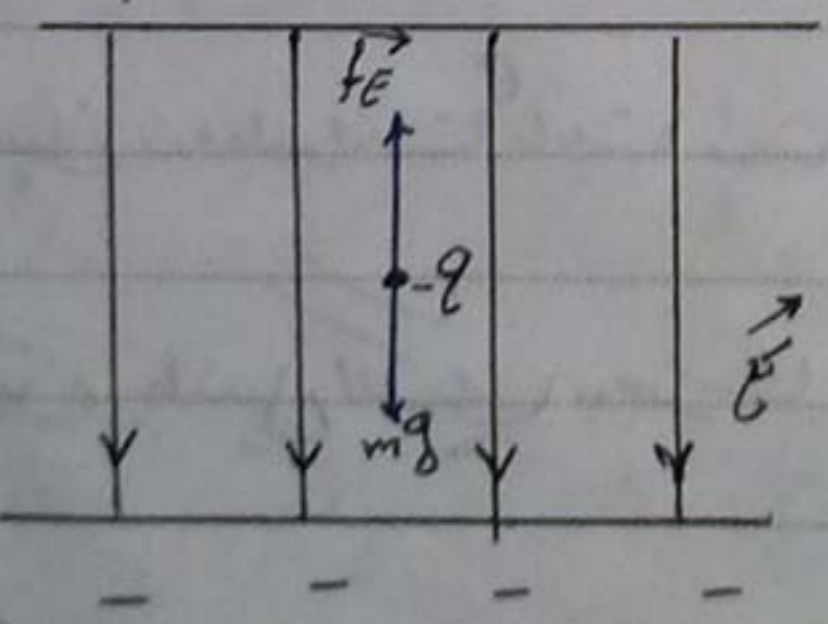 F_E
-q
mg
E
- - - -